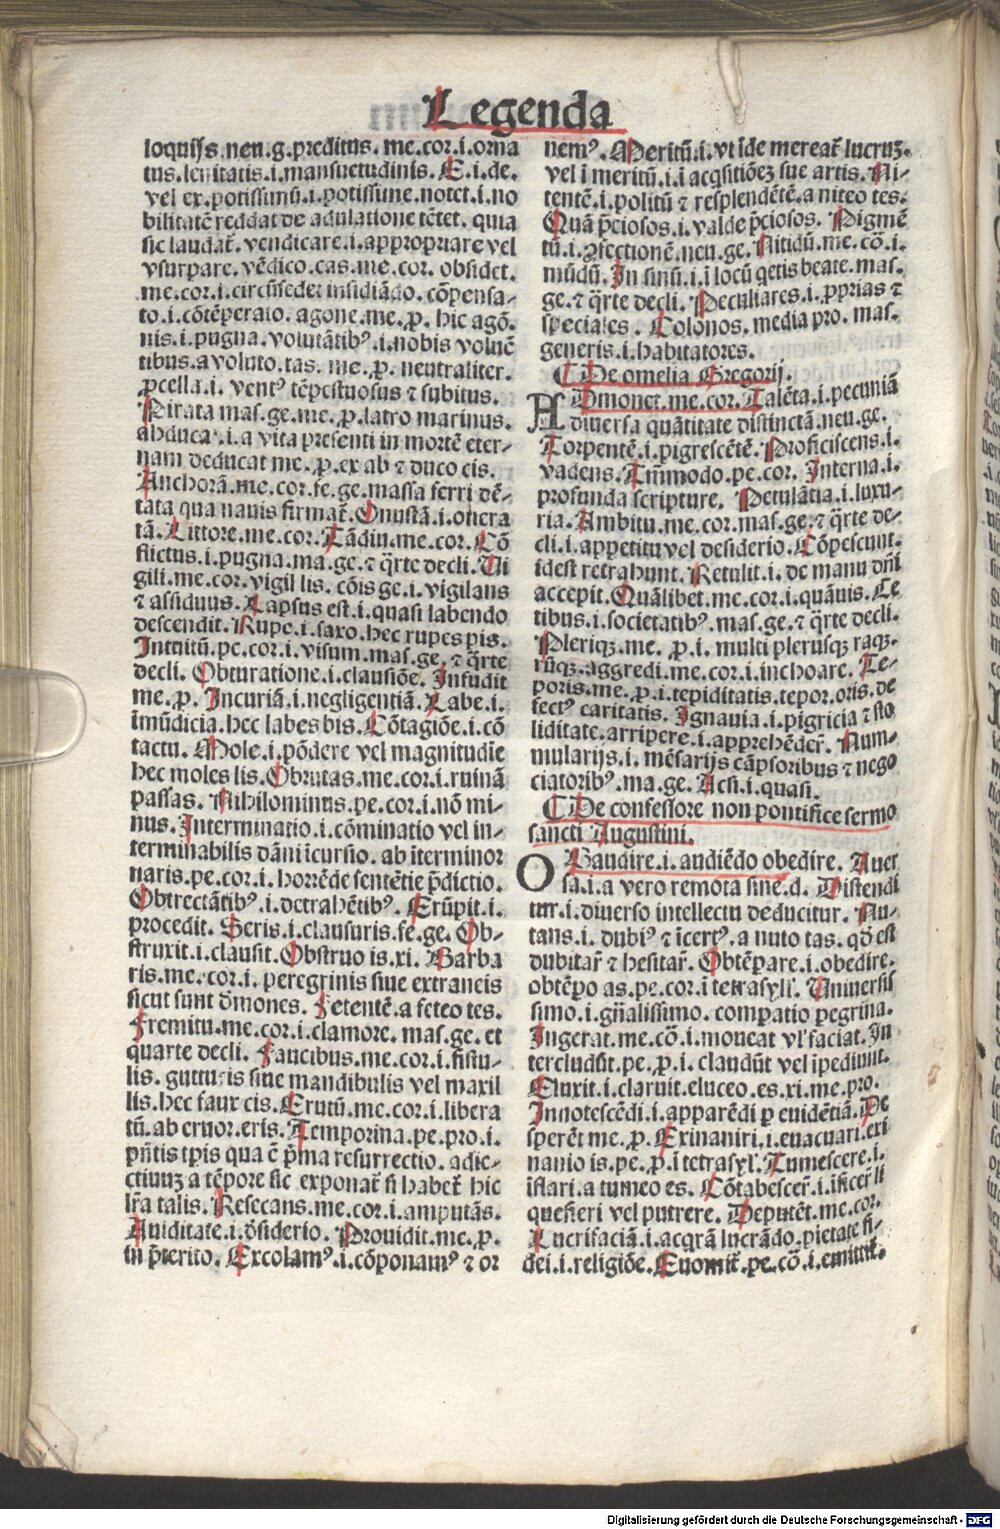 Legenda
loquijs.neu.g.preditus.me.cor.i.orna
tus.lenitatis.i.mansuetudinis.E.i.de.
vel ex.potissimũ.i.potissime.notet.i.no
bilitatẽ reddat de adulatione tẽtet. quia
sic laudat᷑. vendicare.i.appropriare vel
vsurpare. vẽdico.cas.me.cor. obsidet.
me.cor.i.circũsedet insidiãdo. cõpensa-
to.i.cõtẽperato. agone.me.ꝓ. hic agõ.
nis.i.pugna.volutãtibꝰ.i.nobis volvẽ
tibus.a voluto.tas. me.ꝓ. neutraliter.
ꝓcella.i. ventꝰ tẽpestuosus ⁊ subitus.
Pirata mas.ge.me.ꝓ.latro marinus.
abducat.i.a vita presenti in mortẽ eter-
nam deducat me.ꝓ.ex ab ⁊ duco cis.
Anchorã.me.cor.fe.ge.massa ferri dẽ-
tata qua nauis firmat᷑. Onustã.i.onera
tã. Littore.me.cor. Tãdiu.me.cor. Cõ
flictus.i.pugna.ma.ge.⁊ q̃rte decli. Ui
gili.me.cor.vigil lis. cõis ge.i.vigilans
⁊ assiduus. Lapsus est.i.quasi labendo
descendit. Rupe.i.saxo.hec rupes pis.
Intuitũ.pe.cor.i.visum.mas.ge.⁊ q̃rte
decli. Obturatione.i.clausiõe. Insudit
me.ꝓ. Incuriã.i.negligentiã. Labe.i.
ĩmũdicia.hec labes bis. Cõtagiõe.i.cõ
tactu. Mole.i.põdere vel magnitudĩe
hec moles lis. Obrutas.me.cor.i.ruinã
passas. Nihilominus.pe.cor.i.nõ mi-
nus. Interminatio.i.cõminatio vel in-
terminabilis dãni ĩcursio. ab ĩterminor
naris.pe.cor.i. horrẽde sentẽtie p̃dictio.
Obtrectãtibꝰ.i.detrahẽtibꝰ. Erũpit.i.
procedit. Seris.i.clausuris.fe.ge. Ob-
struxit.i.clausit. Obstruo is.xi. Barba
ris.me.cor.i. peregrinis siue extraneis
sicut sunt dẽmones. Fetentẽ.a feteo tes.
Fremitu.me.cor.i.clamore. mas.ge. et
quarte decli. Faucibus.me.cor.i.fistu-
lis. gutturis siue mandibulis vel maxil
lis.hec faux cis. Erutũ.me.cor.i.libera
tũ.ab eruor.eris. Temporina.pe.pro.i.
pñtis tꝑis qua ẽ p̃ma resurrectio. adie-
ctiuũ a tẽpore sic exponat᷑ si habet᷑ hic
lr̃a talis. Resecans.me.cor.i.amputãs.
Auiditate.i.dẽsiderio. Prouidit.me.ꝓ.
in p̃terito. Excolamꝰ.i.cõponamꝰ ⁊ or
nemꝰ. Meritũ.i.vt ĩde mereat᷑ lucruz.
vel ĩ meritũ.i.ĩ acq̃sitiõez sue artis. Ni-
tentẽ.i.politũ ⁊ resplendẽtẽ.a niteo tes.
Quã p̃ciosos.i.valde p̃ciosos. Pigmẽ
tũ.i.ꝯfectionẽ.neu.ge. Nitidũ.me.cõ.i.
mũdũ. In sinũ.i.ĩ locũ q̃etis beate.mas.
ge.⁊ q̃rte decli. Peculiares.i.ꝓprias ⁊
speciales. Colonos. media pro. mas.
generis.i.habitatores.
De omelia Gregorij.
ADmonet.me.cor. Talẽta.i.pecuniã
diuersa quãtitate distinctã.neu.ge.
Torpentẽ.i.pigrescẽtẽ. Proficiscens.i.
vadens. Tm̃modo.pe.cor. Interna.i.
profunda scripture. Petulãtia.i.luxu-
ria. Ambitu.me.cor.mas.ge.⁊ q̃rte de-
cli.i.appetitu vel desiderio. Cõpescunt.
idest retrahunt. Retulit.i. de manu dñi
accepit. Quãlibet.me.cor.i.quãuis. Ce
tibus.i.societatibꝰ.mas.ge.⁊ q̃rte decli.
Pleriqꝫ.me.ꝓ.i. multi plerusqꝫ raqꝫ.
rũqꝫ.aggredi.me.cor.i.inchoare. Te-
poris.me.ꝓ.i.tepiditatis.tepor.oris.de
fectꝰ caritatis. Ignauia.i.pigricia ⁊ sto
liditate.arripere.i.apprehẽder᷑. Num-
mularijs.i. mẽsarijs cãpsoribus ⁊ nego
ciatoribꝰ.ma.ge. Acsi.i.quasi.
De confessore non pontifice sermo
sancti Augustini.
OBaudire.i. audiẽdo obedire. Auer
sa.i.a vero remota sine.d. Distendi
tur.i.diuerso intellectu deducitur. Nu-
tans.i. dubiꝰ ⁊ ĩcertꝰ.a nuto tas. qd̃ est
dubitar᷑ ⁊ hesitar᷑. Obtẽpare.i.obedire.
obtẽpo as.pe.cor.ĩ tetrasyl'i. Uniuersis
simo.i.gñalissimo. compatio ꝑegrina.
Ingerat.me.cõ.i.moueat vl' faciat. In
tercludũt.pe.ꝓ.i. claudũt vel ĩpediunt.
Eluxit.i.claruit.eluceo.es.xi.me.pro.
Innotescẽdi.i.apparẽdi ꝑ euidẽtiã. De
sperẽt me.ꝓ. Exinaniri.i.euacuari.exi
nanio is.pe.ꝓ.ĩ tetrasyl'. Tumescere.i.
ĩflari.a tumeo es. Cõtabescer᷑.i.ĩficer᷑ li
quefieri vel putrere. Deputẽt.me.cor.
Lucrifaciã.i.acq̃rã lucrãdo.pietate fi-
dei.i.religiõe. Euomit᷑.pe.cõ.i.emittit᷑.
Digitalisierung gefördert durch die Deutsche Forschungsgemeinschaft - DFG